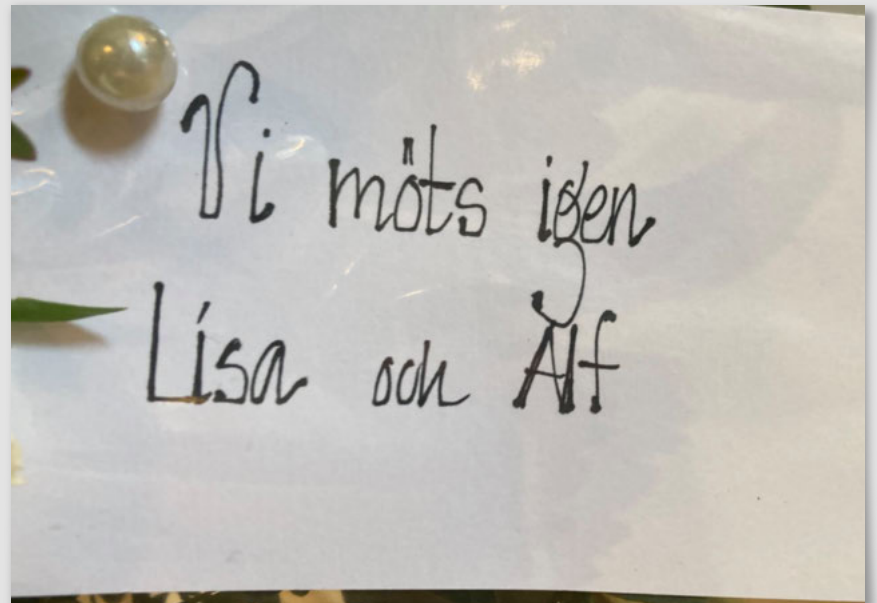 Vi möts igen
Lisa och Alf